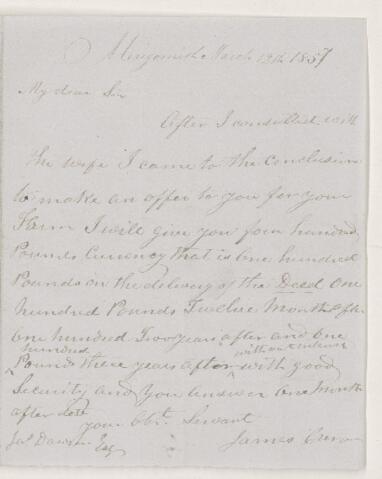 Merigomish March 12th 1857
My dear Sir
After I consulted with
the wife I came to the Conclusion
to make an offer to you for your
Farm I will give you four hundred
Pounds Currency that is one hundred
Pounds on the delivery of the Deed one
hundred Pounds Twelve Months after
one hundred Two years after and one
hundred
Pound three years after with good
without interest
Security and you answer one Month
after date
your Obt. Servant
Jas Dawson Esq
James